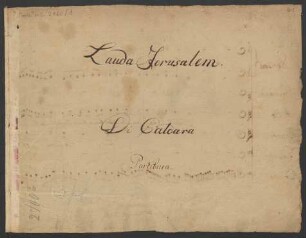 Lauda Jerusalem.
Di Caldara
Partitura